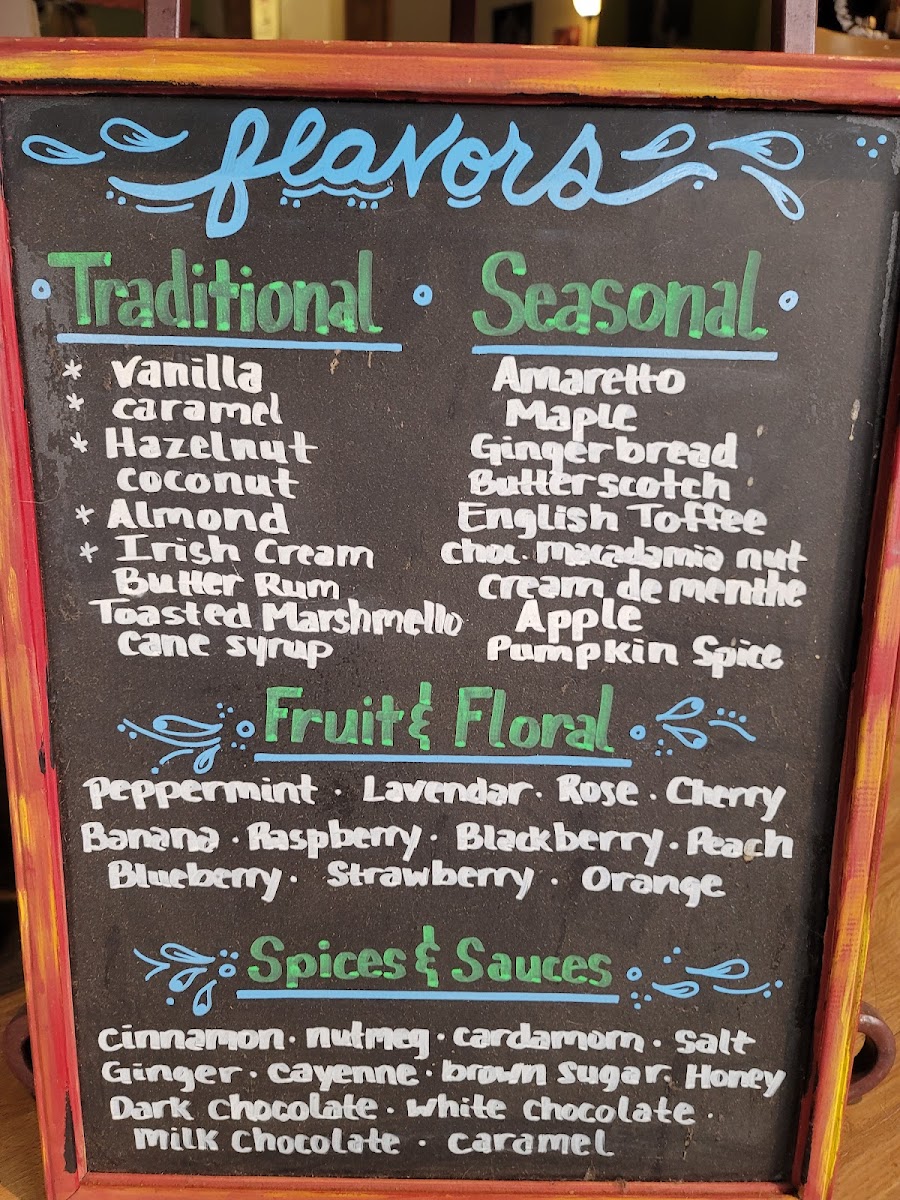 flavors
Traditional
* vanilla
* caramel
* Hazelnut
coconut
* Almond
* Irish Cream
Butter Rum
Toasted Marshmello
cane syrup
Seasonal
Amaretto
Maple
Gingerbread
Butterscotch
English Toffee
choc. macadamia nut
cream de menthe
Apple
Pumpkin Spice
Fruit & Floral
Peppermint · Lavendar · Rose · Cherry
Banana · Raspberry · Blackberry · Peach
Blueberry · Strawberry · Orange
Spices & Sauces
cinnamon · nutmeg · cardamom · salt
Ginger · cayenne · brown sugar Honey
Dark chocolate · white chocolate ·
milk chocolate · caramel